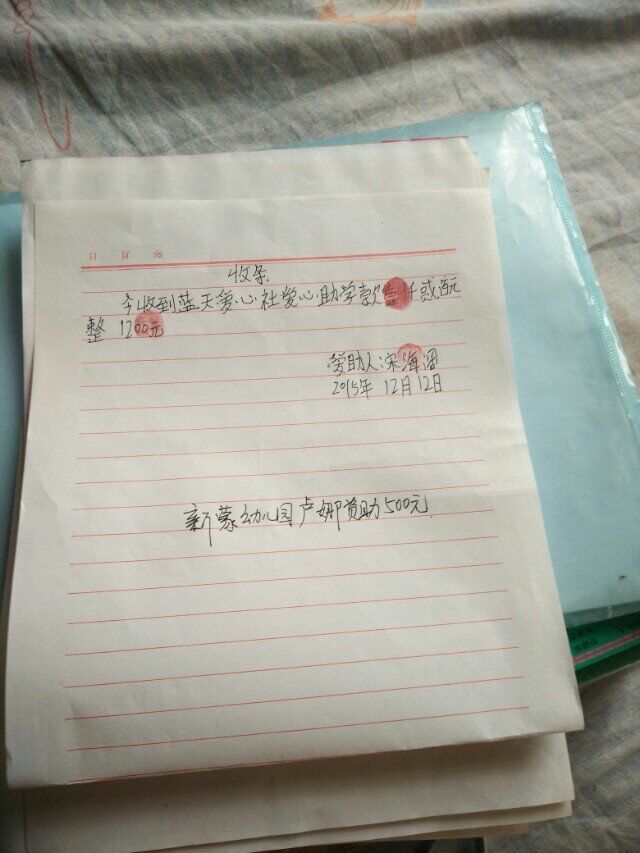 收条
今收到蓝天爱心社爱心助学款壹仟贰佰元
整 1200元
受助人:宋海涸
2015年 12月12日
新蒙幼儿园卢娜资助500元